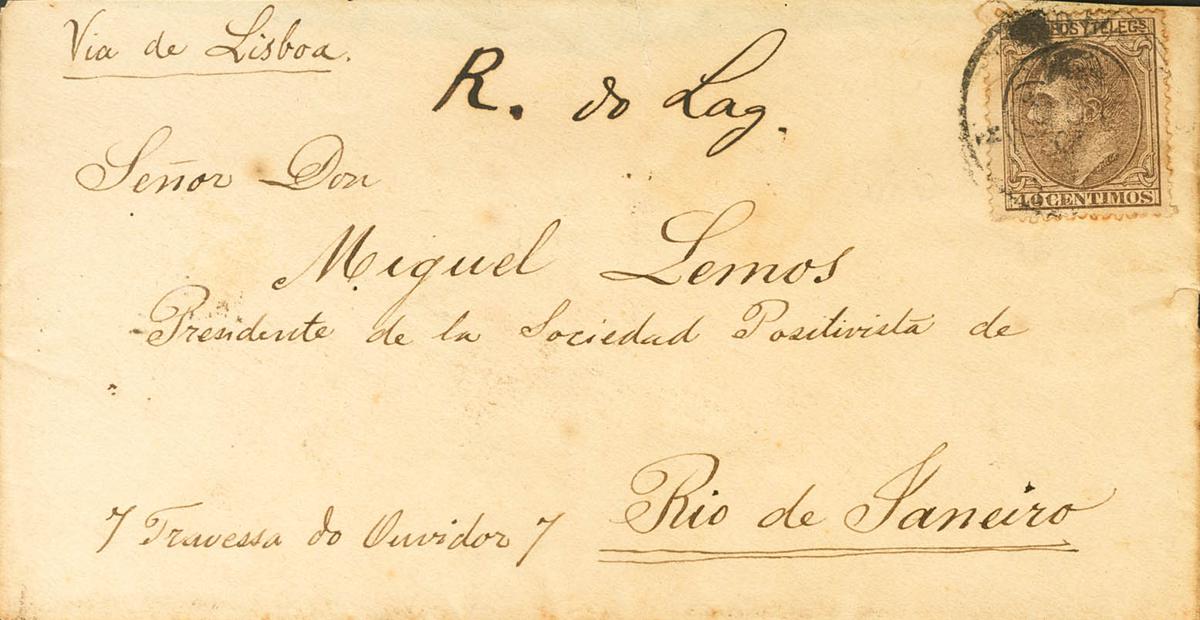 Via de Lisboa.
R. do Lag.
OSYTELEGS
40 CENTIMOS
Señor Don
Miguel Lemos
Presidente de la Sociedad Positivista de
Rio de Janeiro
7 Travessa do Ouvidor 7